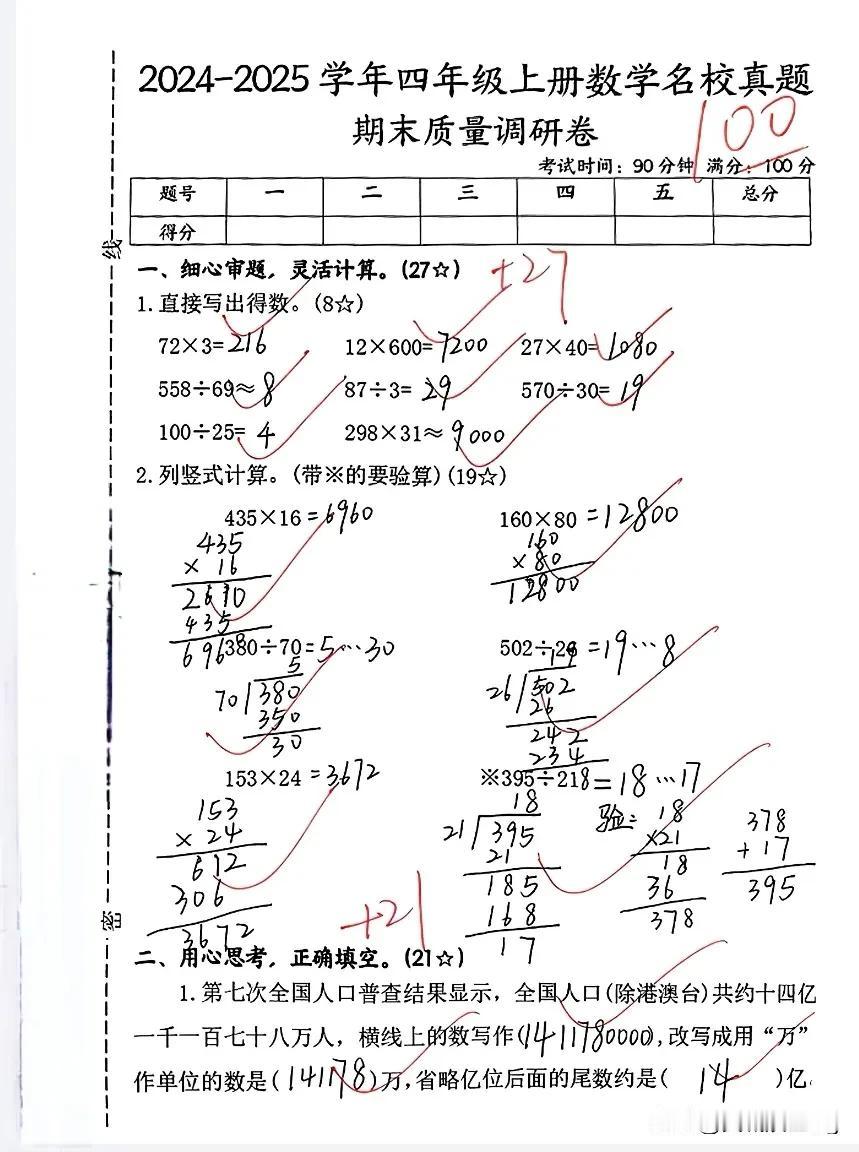 2024-2025学年四年级上册数学名校真题
期末质量调研卷
100
考试时间：90分钟 满分：100分
题号 一 二 三 四 五 总分
得分
线
一、细心审题，灵活计算。(27☆) +27
1.直接写出得数。(8☆)
72×3=216 12×600=7200 27×40=1080
558÷69≈8 87÷3=29 570÷30=19
100÷25=4 298×31≈9000
2.列竖式计算。(带※的要验算)(19☆)
435×16=6960 160×80=12800
435 160
×16 ×80
2610 12800
435
696
380÷70=5…30 502÷26=19…8
5 19
70 380 26 502
350 26
30 242
234
8
153×24=3672 ※395÷21=18…17
153 18 验：18 378
×24 21 395 ×21 +17
612 21 18 395
306 185 36
3672 168 378
17
密
+21
二、用心思考，正确填空。(21☆)
1.第七次全国人口普查结果显示，全国人口(除港澳台)共约十四亿
一千一百七十八万人，横线上的数写作(1411780000),改写成用“万”
作单位的数是(141178)万,省略亿位后面的尾数约是(14)亿。